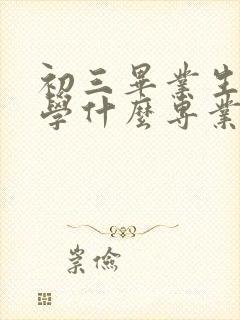 初三畢業生
學什麼專業
崇儉